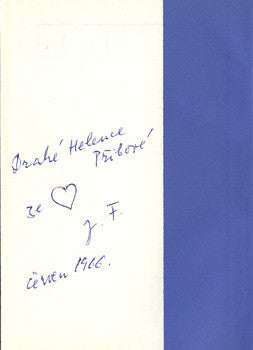 Drahé Helence
Příbové
ze ♡
J. F.
červen 1966.